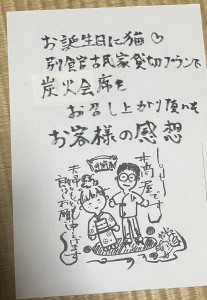 お誕生日に猫♡
別館古民家貸切プランで
炭火会席を
お召し上がり頂いた
お客様の感想
夫婦ともども
お願い申し上げます